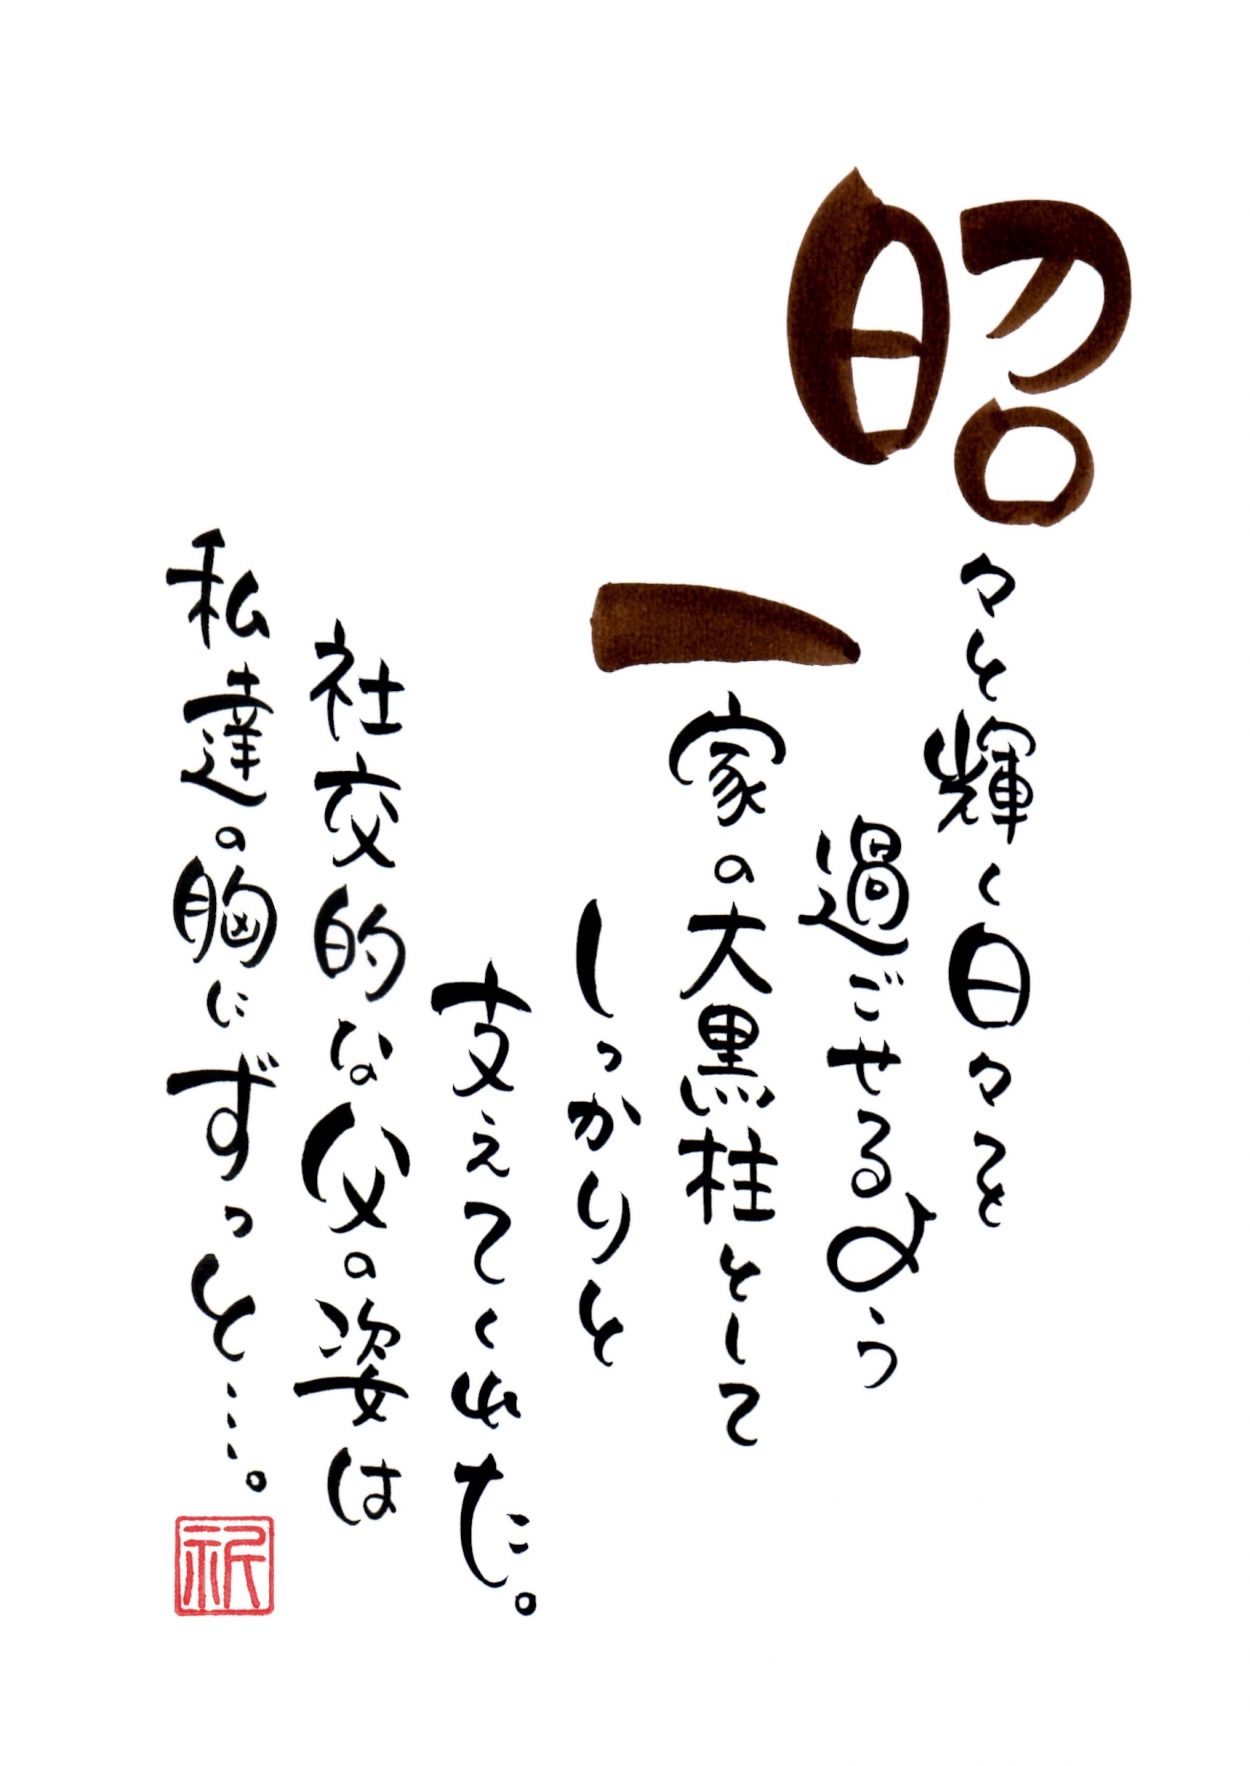 昭々と輝く日々を
過ごせるよう
一家の大黒柱として
しっかりと
支えてくれた。
社交的な父の姿は
私達の胸にずっと…。